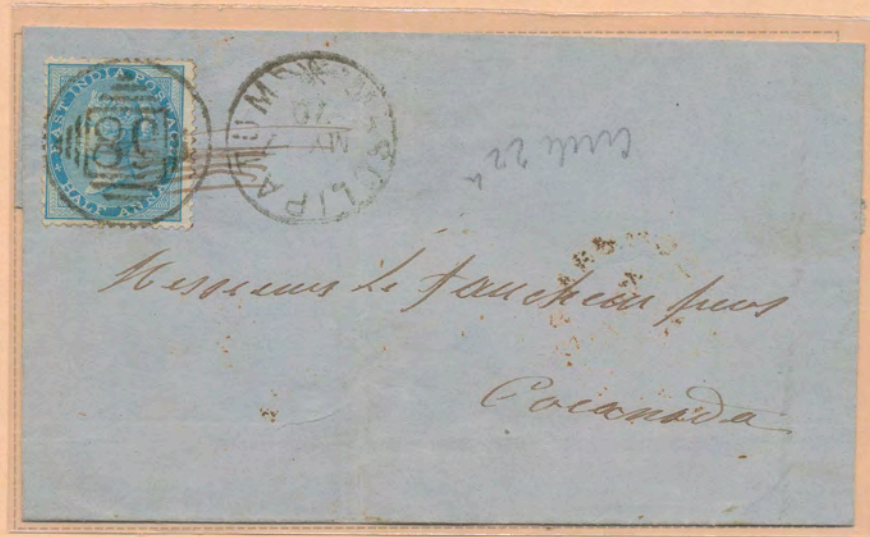 EAST INDIA POSTAGE
HALF ANNA
MASULIPATUM
MY
70
Circle 22
Messieurs Le Faucheur freres
Cocanada